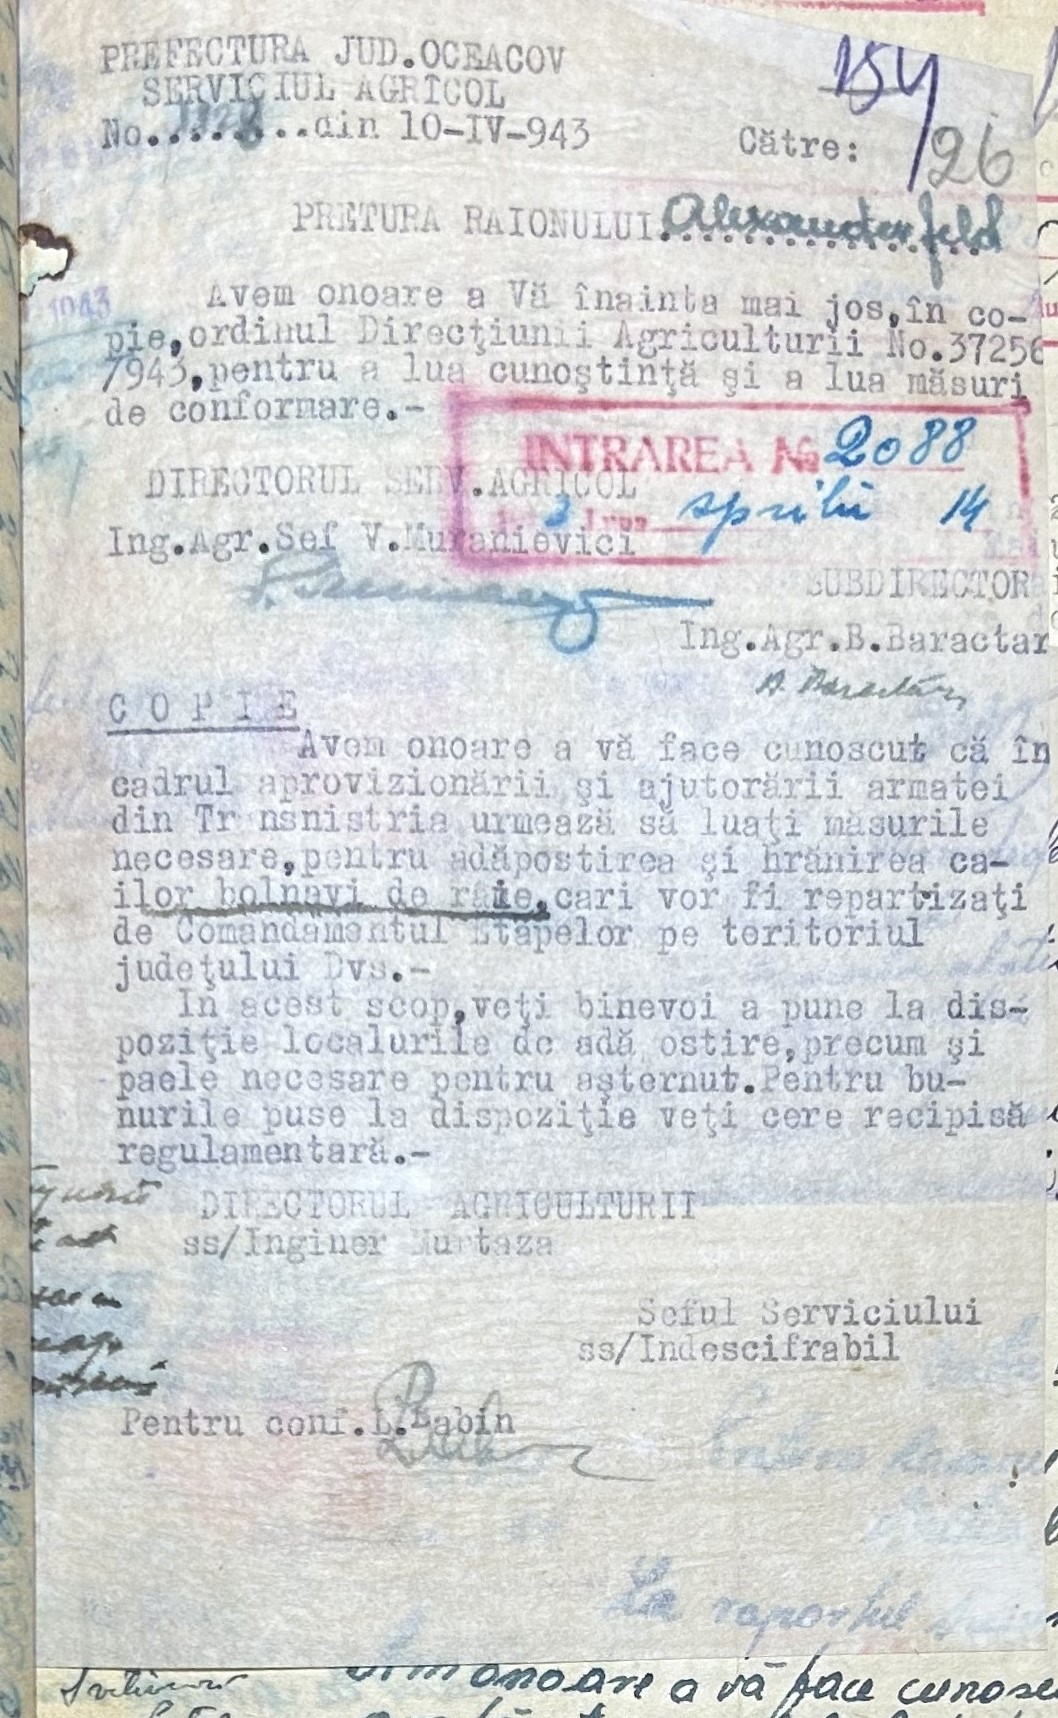 PREFECTURA JUD.OCEACOV
SERVICIUL AGRICOL
No.........din 10-IV-943
154
Către:
96
PRETURA RAIONULUI Alexanderfeld
1943
Avem onoare a Vă înainta mai jos,în co-
pie,ordinul Direcţiunii Agriculturii No.37256
/943,pentru a lua cunoştinţă şi a lua măsuri
de conformare.-
INTRAREA No 2088
DIRECTORUL SERV.AGRICOL
aprilie 14
Ing.Agr.Sef V.Muranievici
SUBDIRECTOR
Ing.Agr.B.Baractar
B. Baractar
COPIE
Avem onoare a vă face cunoscut că în
cadrul aprovizionării şi ajutorării armatei
din Tr nsnistria urmează să luaţi măsurile
necesare,pentru adăpostirea şi hrănirea ca-
ilor bolnavi de râie,cari vor fi repartizaţi
de Comandamentul Etapelor pe teritoriul
judeţului Dvs.-
In acest scop,veţi binevoi a pune la dis-
poziţie localurile de adă ostire,precum şi
paele necesare pentru aşternut.Pentru bu-
nurile puse la dispoziţie veţi cere recipisă
regulamentară.-
DIRECTORUL AGRICULTURII
ss/Inginer Murtaza
Seful Serviciului
ss/Indescifrabil
Pentru conf.L.Babin
La raportul
onoare a vă face cunosc